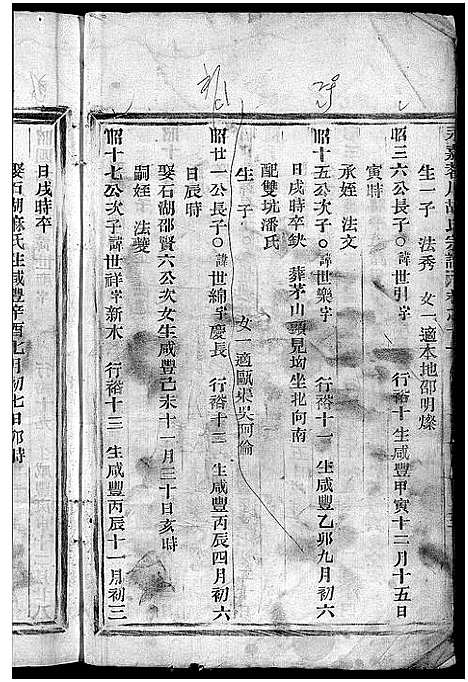 生一子 法秀 女一適本地邵明燦
昭三六公長子○諱世引字 行裕十 生咸豐甲寅十二月十五日
寅時
承姪 法文
昭十五公次子○諱世樂字 行裕十一 生咸豐乙卯九月初六
日戌時卒缺 葬茅山頭見塆坐北向南
配雙坑潘氏
生一子 女一適甌渠吳阿倫
昭廿一公長子○諱世綿字慶長 行裕十二 生咸豐丙辰四月初六
日辰時
娶石湖邵賢六公次女生咸豐己未十一月三十日亥時
嗣姪 法燮
昭十七公次子○諱世祥字新水 行裕十三 生咸豐丙辰十一月初三
日戌時卒
娶石湖麻氏生咸豐辛酉七月初七日卯時